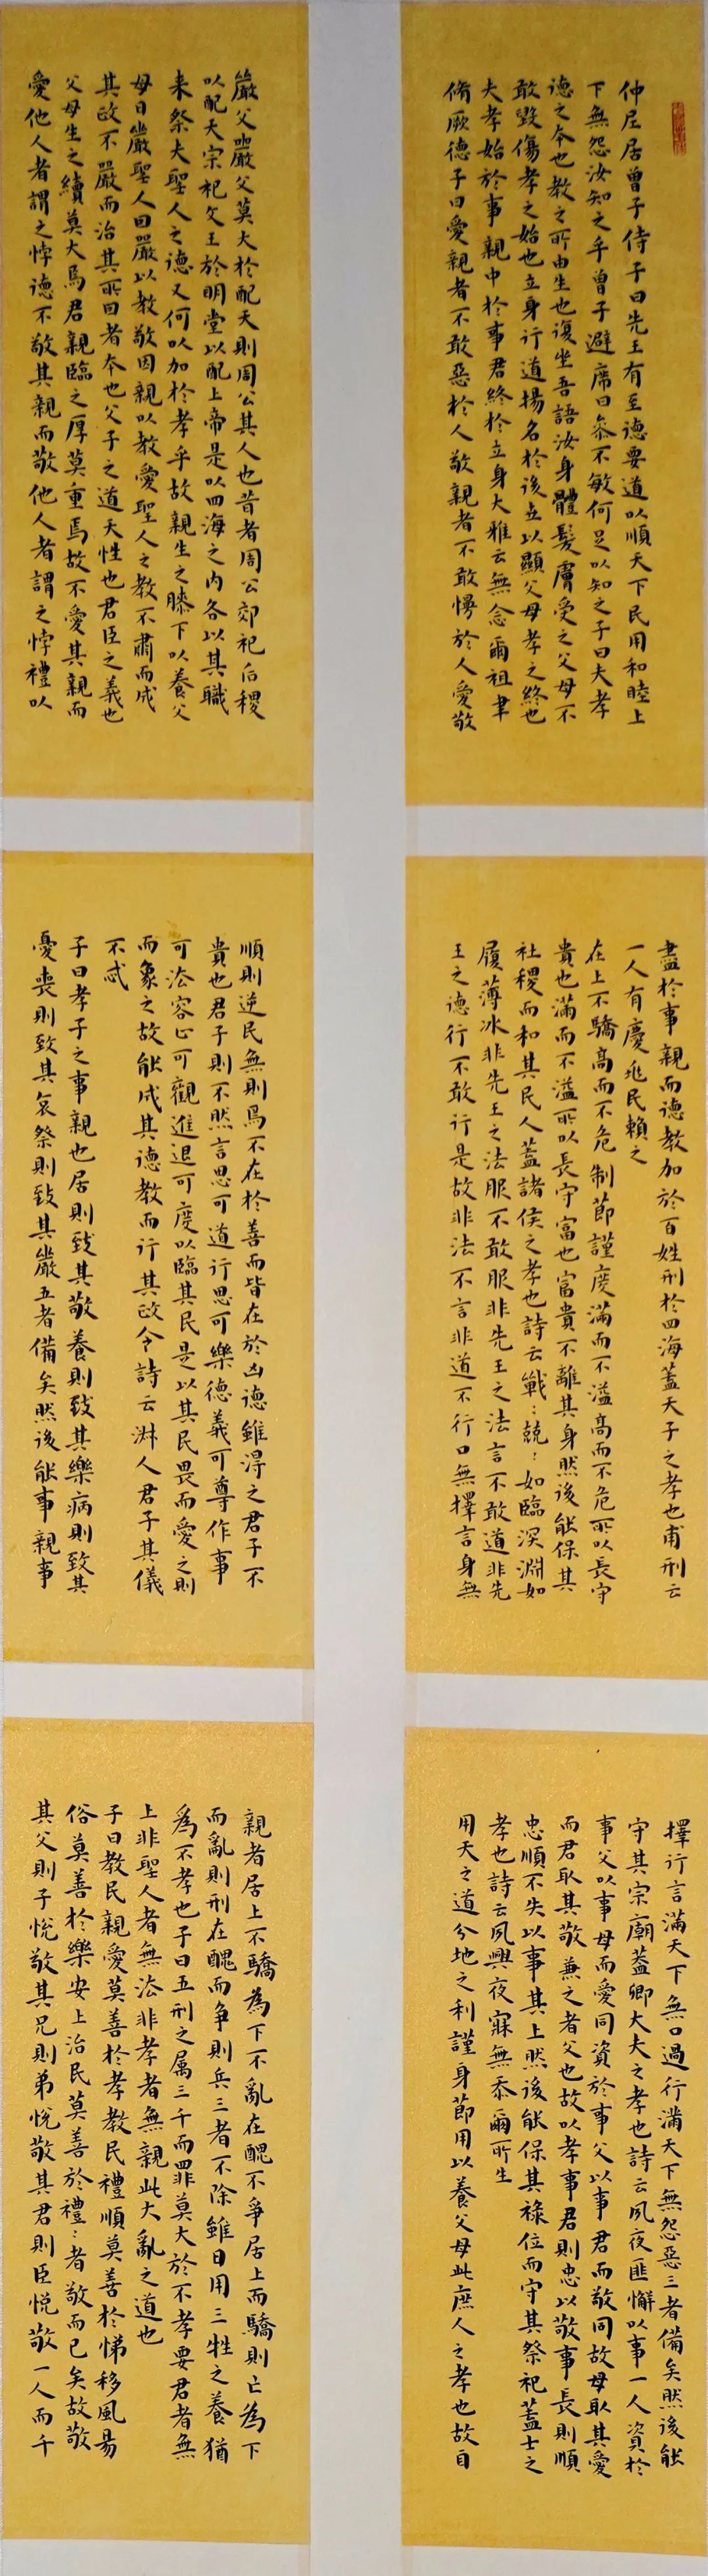 仲尼居曾子侍子曰先王有至德要道以順天下民用和睦上
下無怨汝知之乎曾子避席曰參不敏何足以知之子曰夫孝
德之本也教之所由生也復坐吾語汝身體髮膚受之父母不
敢毀傷孝之始也立身行道揚名於後世以顯父母孝之終也
夫孝始於事親中於事君終於立身大雅云無念爾祖聿
脩厥德子曰愛親者不敢惡於人敬親者不敢慢於人愛敬
盡於事親而德教加於百姓刑於四海蓋天子之孝也甫刑云
一人有慶兆民賴之
在上不驕高而不危制節謹度滿而不溢高而不危所以長守
貴也滿而不溢所以長守富也富貴不離其身然後能保其
社稷而和其民人蓋諸侯之孝也詩云戰:兢:如臨深淵如
履薄冰非先王之法服不敢服非先王之法言不敢道非先
王之德行不敢行是故非法不言非道不行口無擇言身無
擇行言滿天下無口過行滿天下無怨惡三者備矣然後能
守其宗廟蓋卿大夫之孝也詩云夙夜匪懈以事一人資於
事父以事母而愛同資於事父以事君而敬同故母取其愛
而君取其敬兼之者父也故以孝事君則忠以敬事長則順
忠順不失以事其上然後能保其祿位而守其祭祀蓋士之
孝也詩云夙興夜寐無忝爾所生
用天之道分地之利謹身節用以養父母此庶人之孝也故自
嚴父嚴父莫大於配天則周公其人也昔者周公郊祀后稷
以配天宗祀文王於明堂以配上帝是以四海之內各以其職
来祭夫聖人之德又何以加於孝乎故親生之膝下以養父
母日嚴聖人因嚴以教敬因親以教愛聖人之教不肅而成
其政不嚴而治其所因者本也父子之道天性也君臣之義也
父母生之續莫大焉君親臨之厚莫重焉故不愛其親而
愛他人者謂之悖德不敬其親而敬他人者謂之悖禮以
順則逆民無則焉不在於善而皆在於凶德雖得之君子不
貴也君子則不然言思可道行思可樂德義可尊作事
可法容止可觀進退可度以臨其民是以其民畏而愛之則
而象之故能成其德教而行其政令詩云淑人君子其儀
不忒
子曰孝子之事親也居則致其敬養則致其樂病則致其
憂喪則致其哀祭則致其嚴五者備矣然後能事親事
親者居上不驕為下不亂在醜不爭居上而驕則亡為下
而亂則刑在醜而爭則兵三者不除雖日用三牲之養猶
為不孝也子曰五刑之属三千而罪莫大於不孝要君者無
上非聖人者無法非孝者無親此大亂之道也
子曰教民親愛莫善於孝教民禮順莫善於悌移風易
俗莫善於樂安上治民莫善於禮:者敬而已矣故敬
其父則子悅敬其兄則弟悅敬其君則臣悅敬一人而千